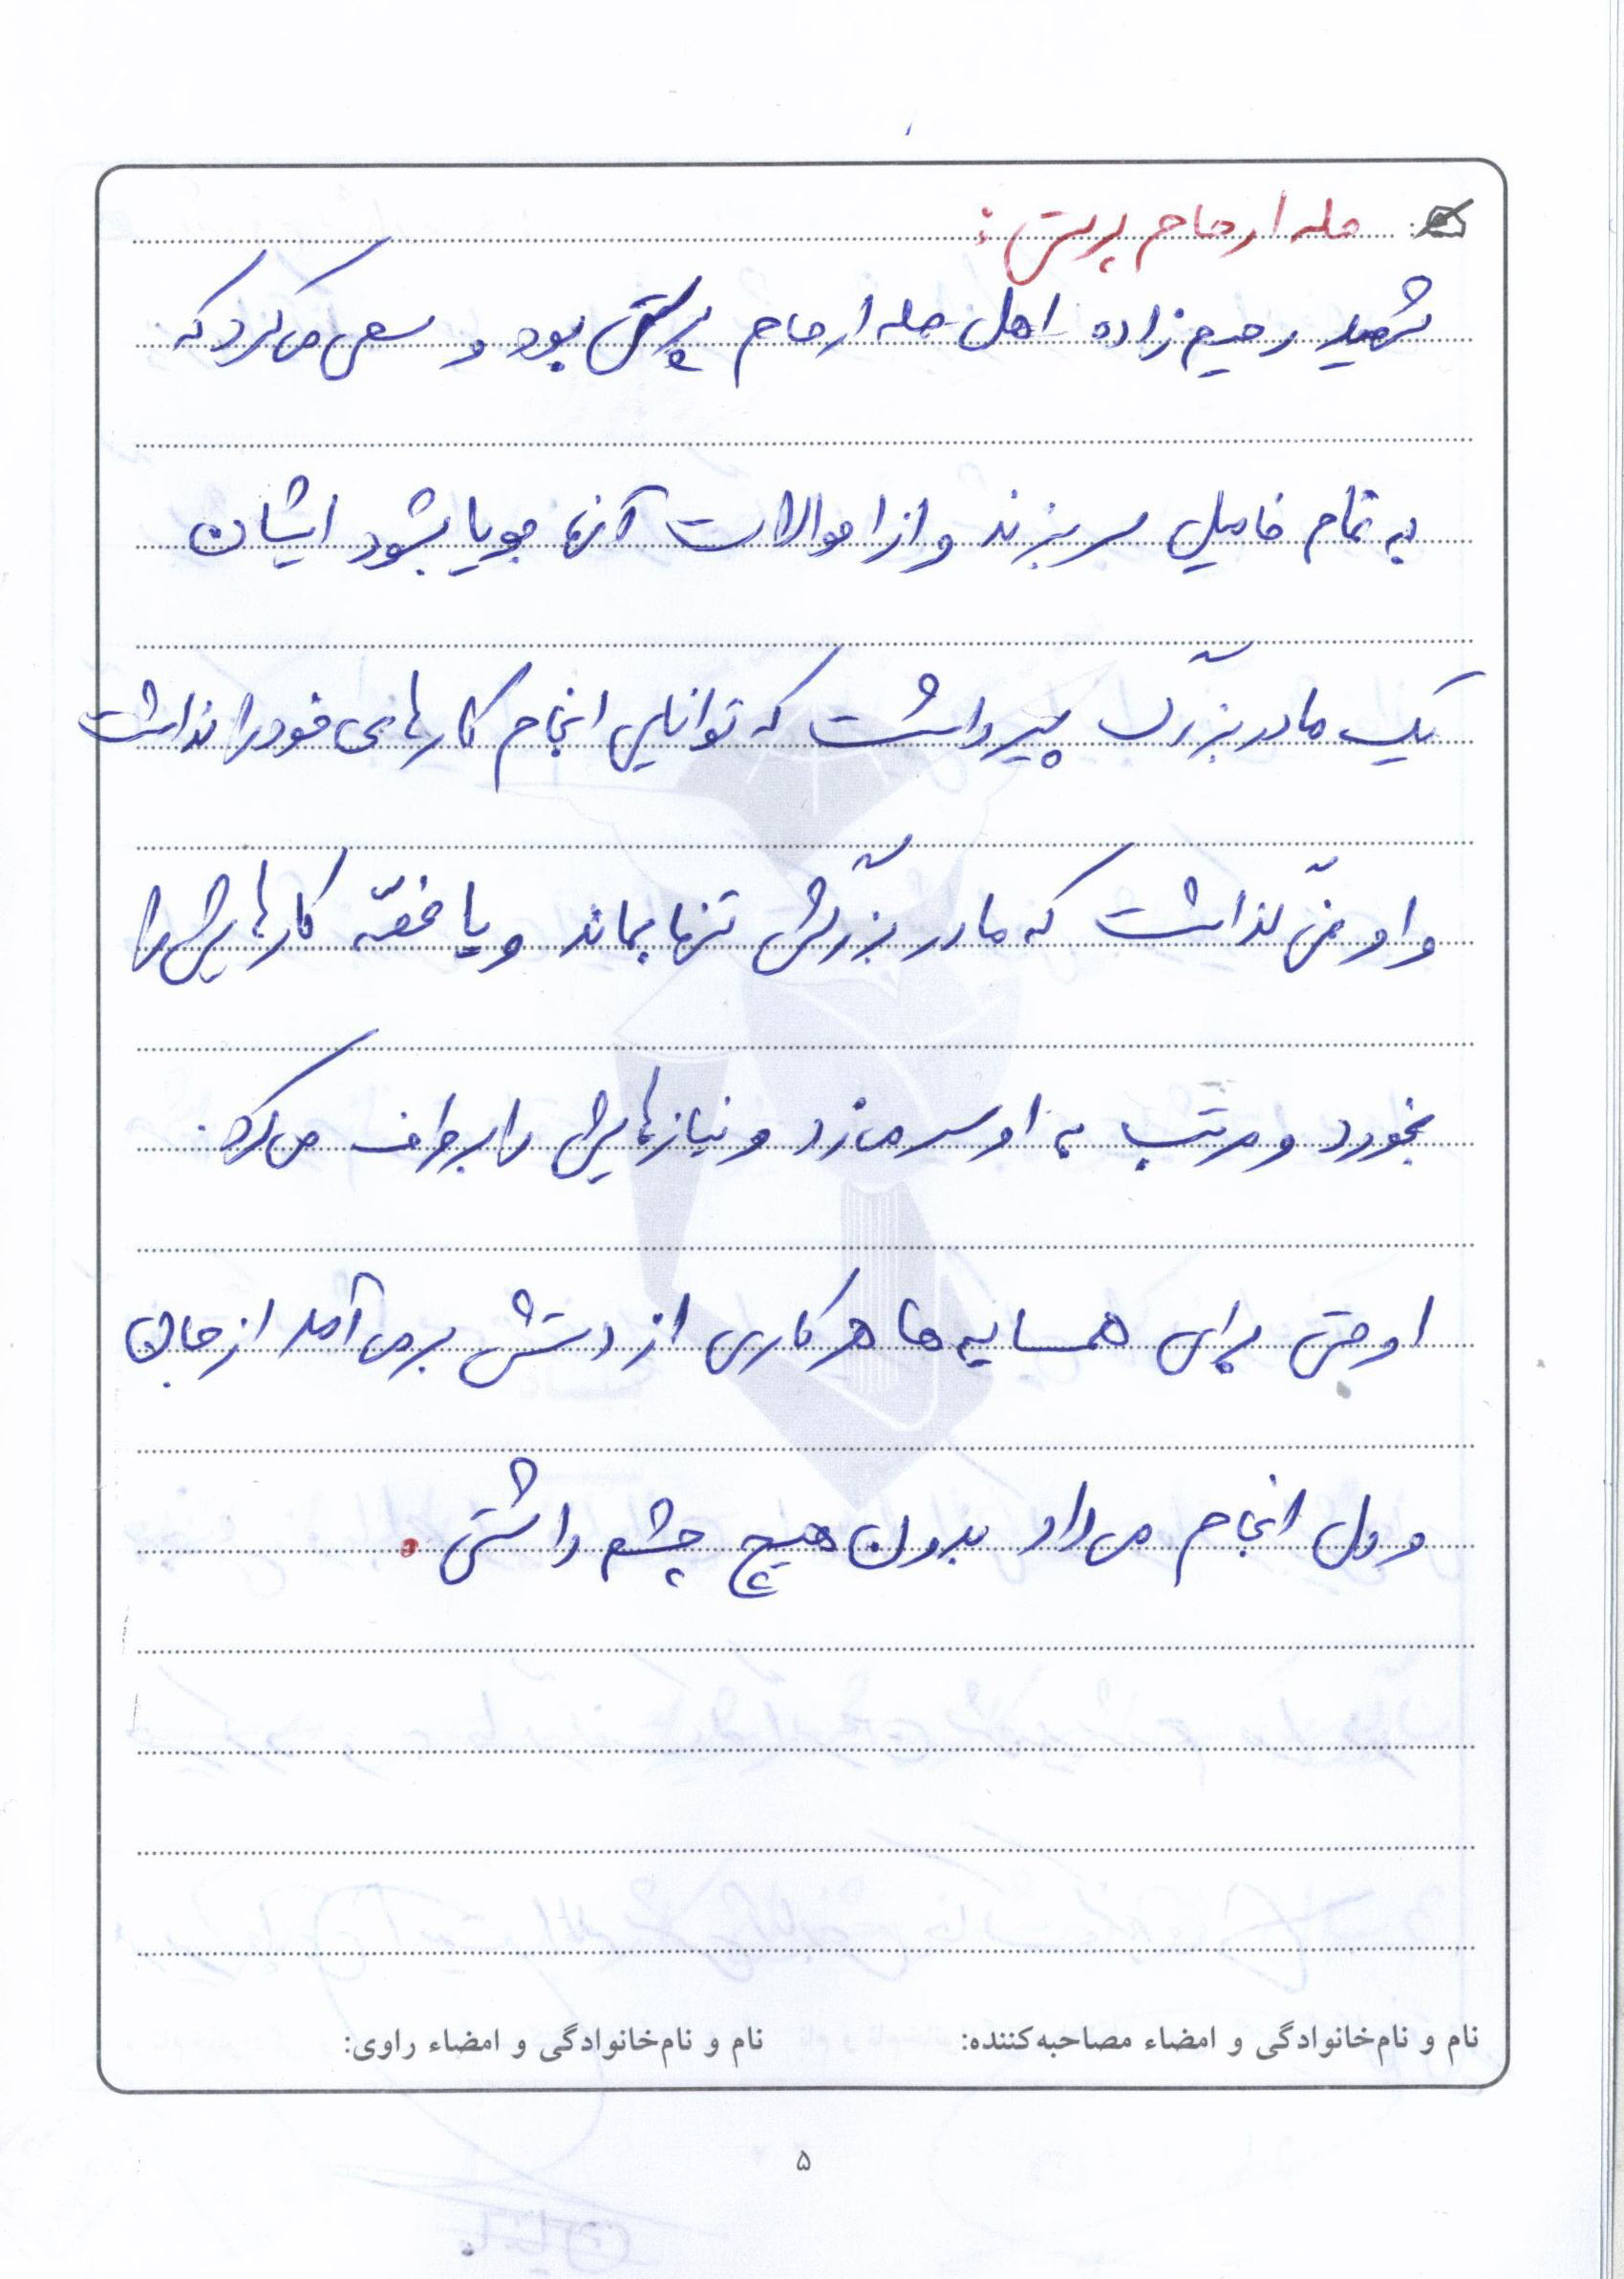 صله ارحام پرستی:
شهید رحیم زاده اهل صله ارحام پرستی بود و سعی می کرد که
به تمام فامیل سر بزند و از احوالات آنها جویا بشود ایشان
یک مادر بزرگ پیر داشت که توانایی انجام کارهای خود را نداشت
و او نمی گذاشت که مادر بزرگش تنها بماند و یا غصّه کارهایش را
بخورد و مرتب به او سر می زد و نیازهایش را برطرف می کرد.
او حتی برای همسایه ها هر کاری از دستش بر می آمد از جان
و دل انجام می داد بدون هیچ چشم داشتی.
نام و نام‌خانوادگی و امضاء مصاحبه‌کننده: نام و نام‌خانوادگی و امضاء راوی:
۵